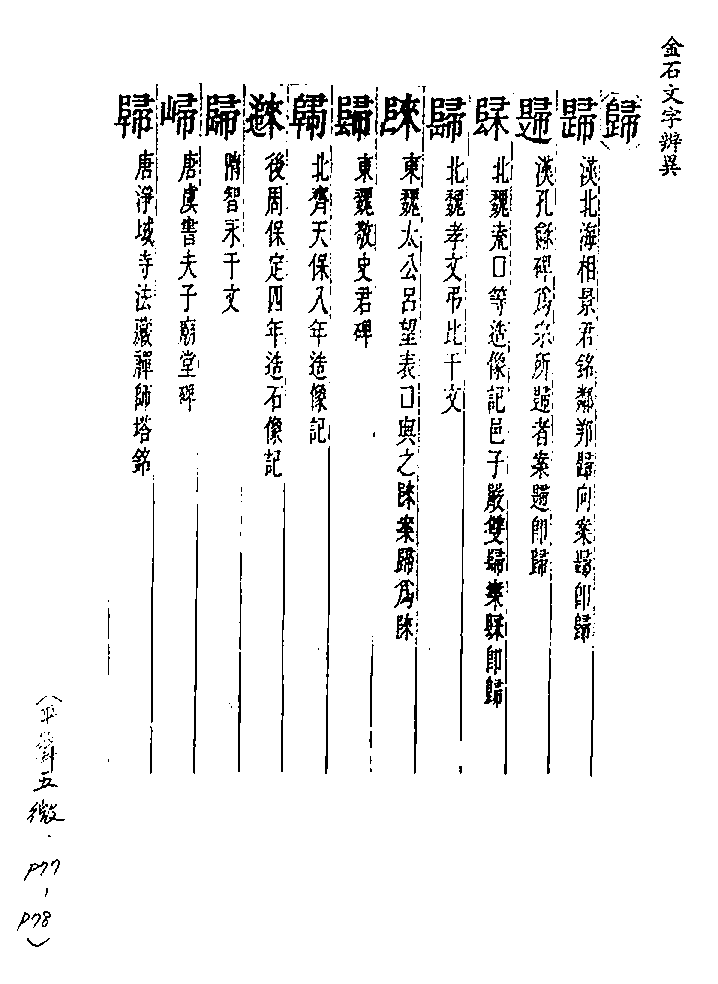 金石文字辨異
(歸)
歸 漢北海相景君銘鄰邦歸向案歸即歸
𨔹 漢孔龢碑爲宗所歸者案即歸
北魏口等造像記邑子嚴雙歸案即歸
歸 北魏孝文弔比干文
東魏太公呂望表口與之案歸爲
歸 東魏敬史君碑
北齊天保八年造像記
後周保定四年造石像記
歸 隋智永千文
㱕 唐虞書夫子廟堂碑
唐淨域寺法藏禪師塔銘
(平聲五微.P77-P78)